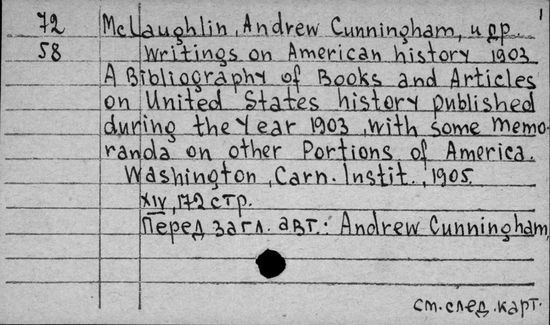 1
72 McLaughlin, Andrew Cunningham, и др.
58 Writings on American history 1903
A Bibliography of Books and Articles
on United States history published
during the Year 1903, with some memo-
randa on other Portions of America.
Washington, Carn. Instit., 1905.
XIV, 172 стр.
Перед загл. авт.: Andrew Cunningham,
см. след. карт.